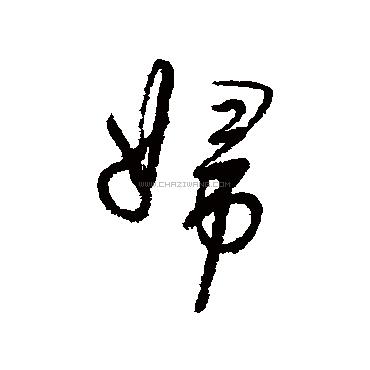 婦
WWW.CHAZIWANG.COM